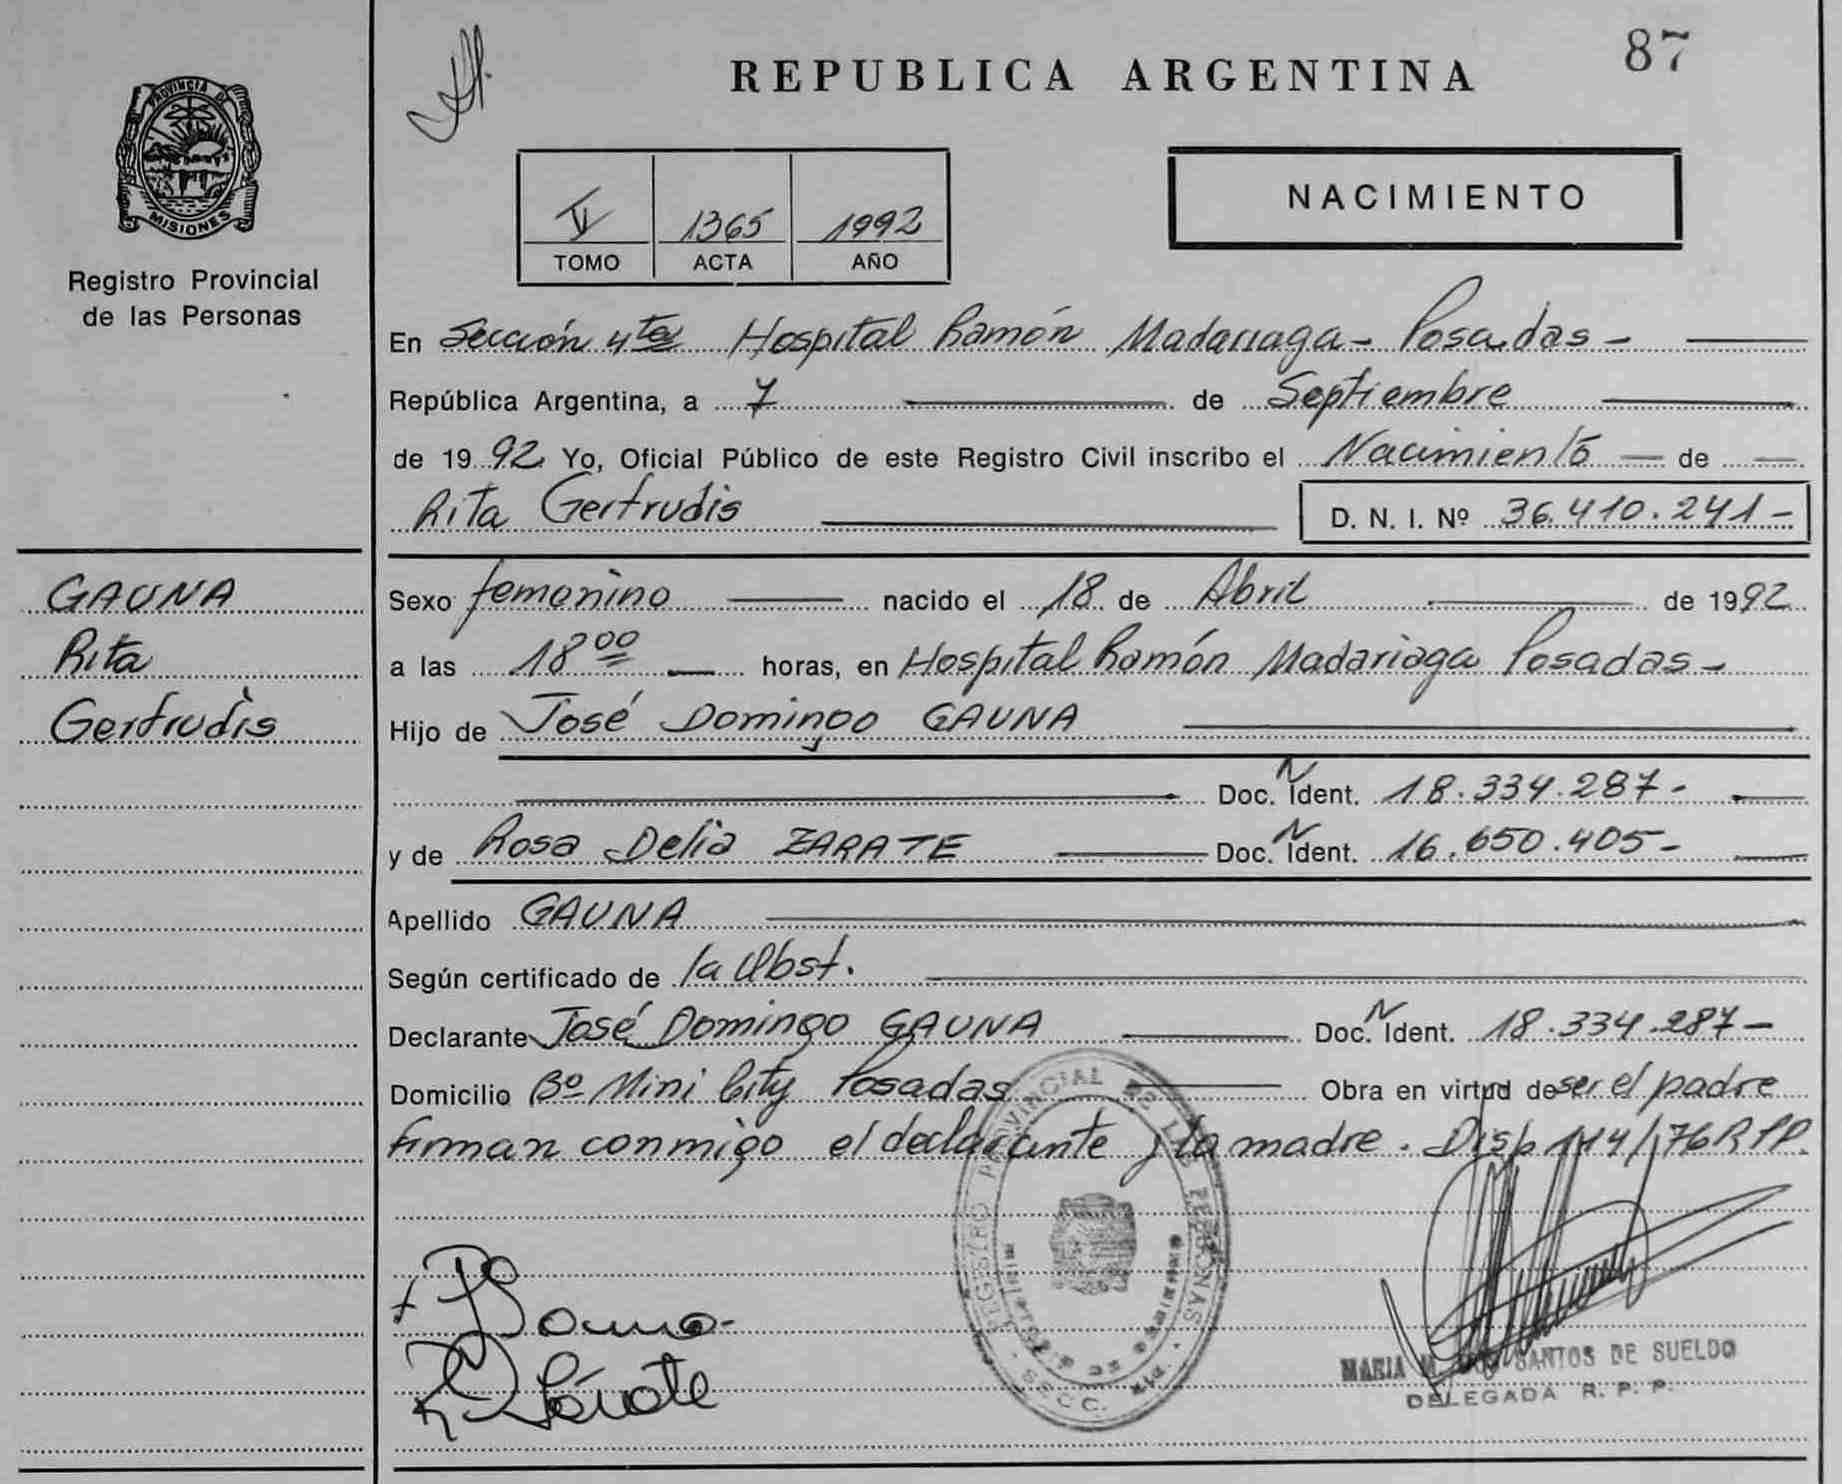 87
REPUBLICA ARGENTINA
PROVINCIA DE
MISIONES
Registro Provincial
de las Personas
NACIMIENTO
1365 1992
TOMO ACTA AÑO
En Sección 4ta Hospital Ramón Madariaga - Posadas -
República Argentina, a 7 de Septiembre
de 1992 Yo, Oficial Público de este Registro Civil inscribo el Nacimiento de
Rita Gertrudis D. N. I. Nº 36.410.241-
GAUNA
Rita
Gertrudis
Sexo femenino nacido el 18 de Abril de 1992
a las 18 00 horas, en Hospital Ramón Madariaga Posadas -
Hijo de José Domingo GAUNA
Doc. N Ident. 18.334.287-
y de Rosa Delia ZARATE Doc. N Ident. 16.650.405-
Apellido GAUNA
Según certificado de la Obst.
Declarante José Domingo GAUNA Doc. N Ident. 18.334.287-
Domicilio Bº Mini City Posadas Obra en virtud de ser el padre
firman conmigo el declarante y la madre. Disp 114/76 RPP.
REGISTRO PROVINCIAL DE LAS PERSONAS
SECC.
MARIA SANTOS DE SUELDO
DELEGADA R. P. P.